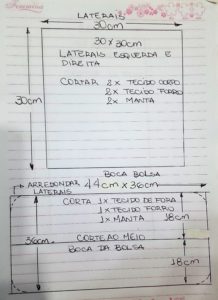 Feminina
LATERAIS
30cm
30 x 30cm
LATERAIS ESQUERDA E
DIREITA
30cm
CORTAR 2x TECIDO CORPO
2x TECIDO FORRO
2x MANTA
BOCA BOLSA
ARREDONDAR 44cm x 36cm
LATERAIS
CORTA 1x TECIDO DE FORA
1x TECIDO FORRO
1x MANTA 18cm
36cm
CORTE AO MEIO
BOCA DA BOLSA
18cm